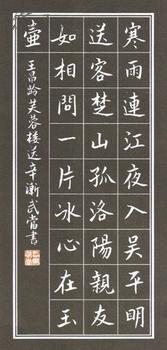 寒雨連江夜入吳平明
送客楚山孤洛陽親友
如相問一片冰心在玉
壺
王昌齡芙蓉樓送辛漸武當書